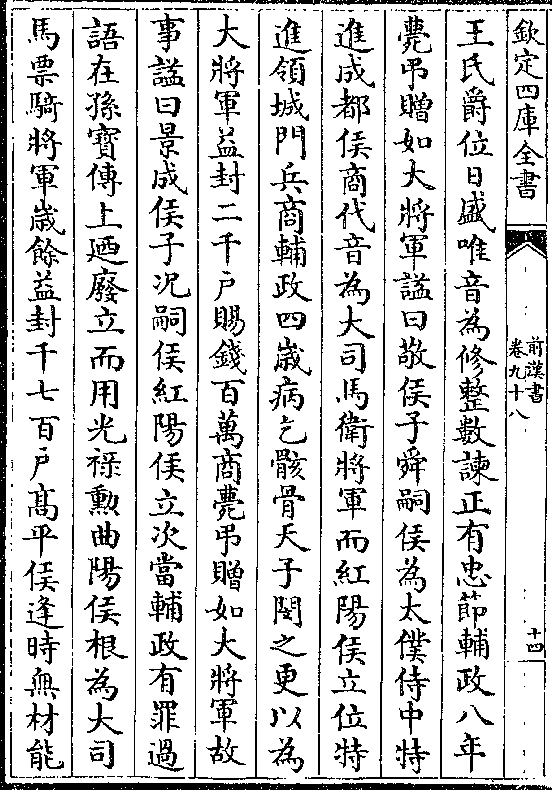 欽定四庫全書
前漢書
卷九十八
十四
王氏爵位日盛唯音為修整數諫正有忠節輔政八年
薨弔贈如大將軍諡曰敬侯子舜嗣侯為太僕侍中特
進成都侯商代音為大司馬衛將軍而紅陽侯立位特
進領城門兵商輔政四嵗病乞骸骨天子閔之更以為
大將軍益封二千户賜錢百萬商薨弔贈如大將軍故
事諡曰景成侯子况嗣侯紅陽侯立次當輔政有罪過
語在孫寶傳上廼廢立而用光祿勲曲陽侯根為大司
馬票騎將軍嵗餘益封千七百户髙平侯逢時無材能